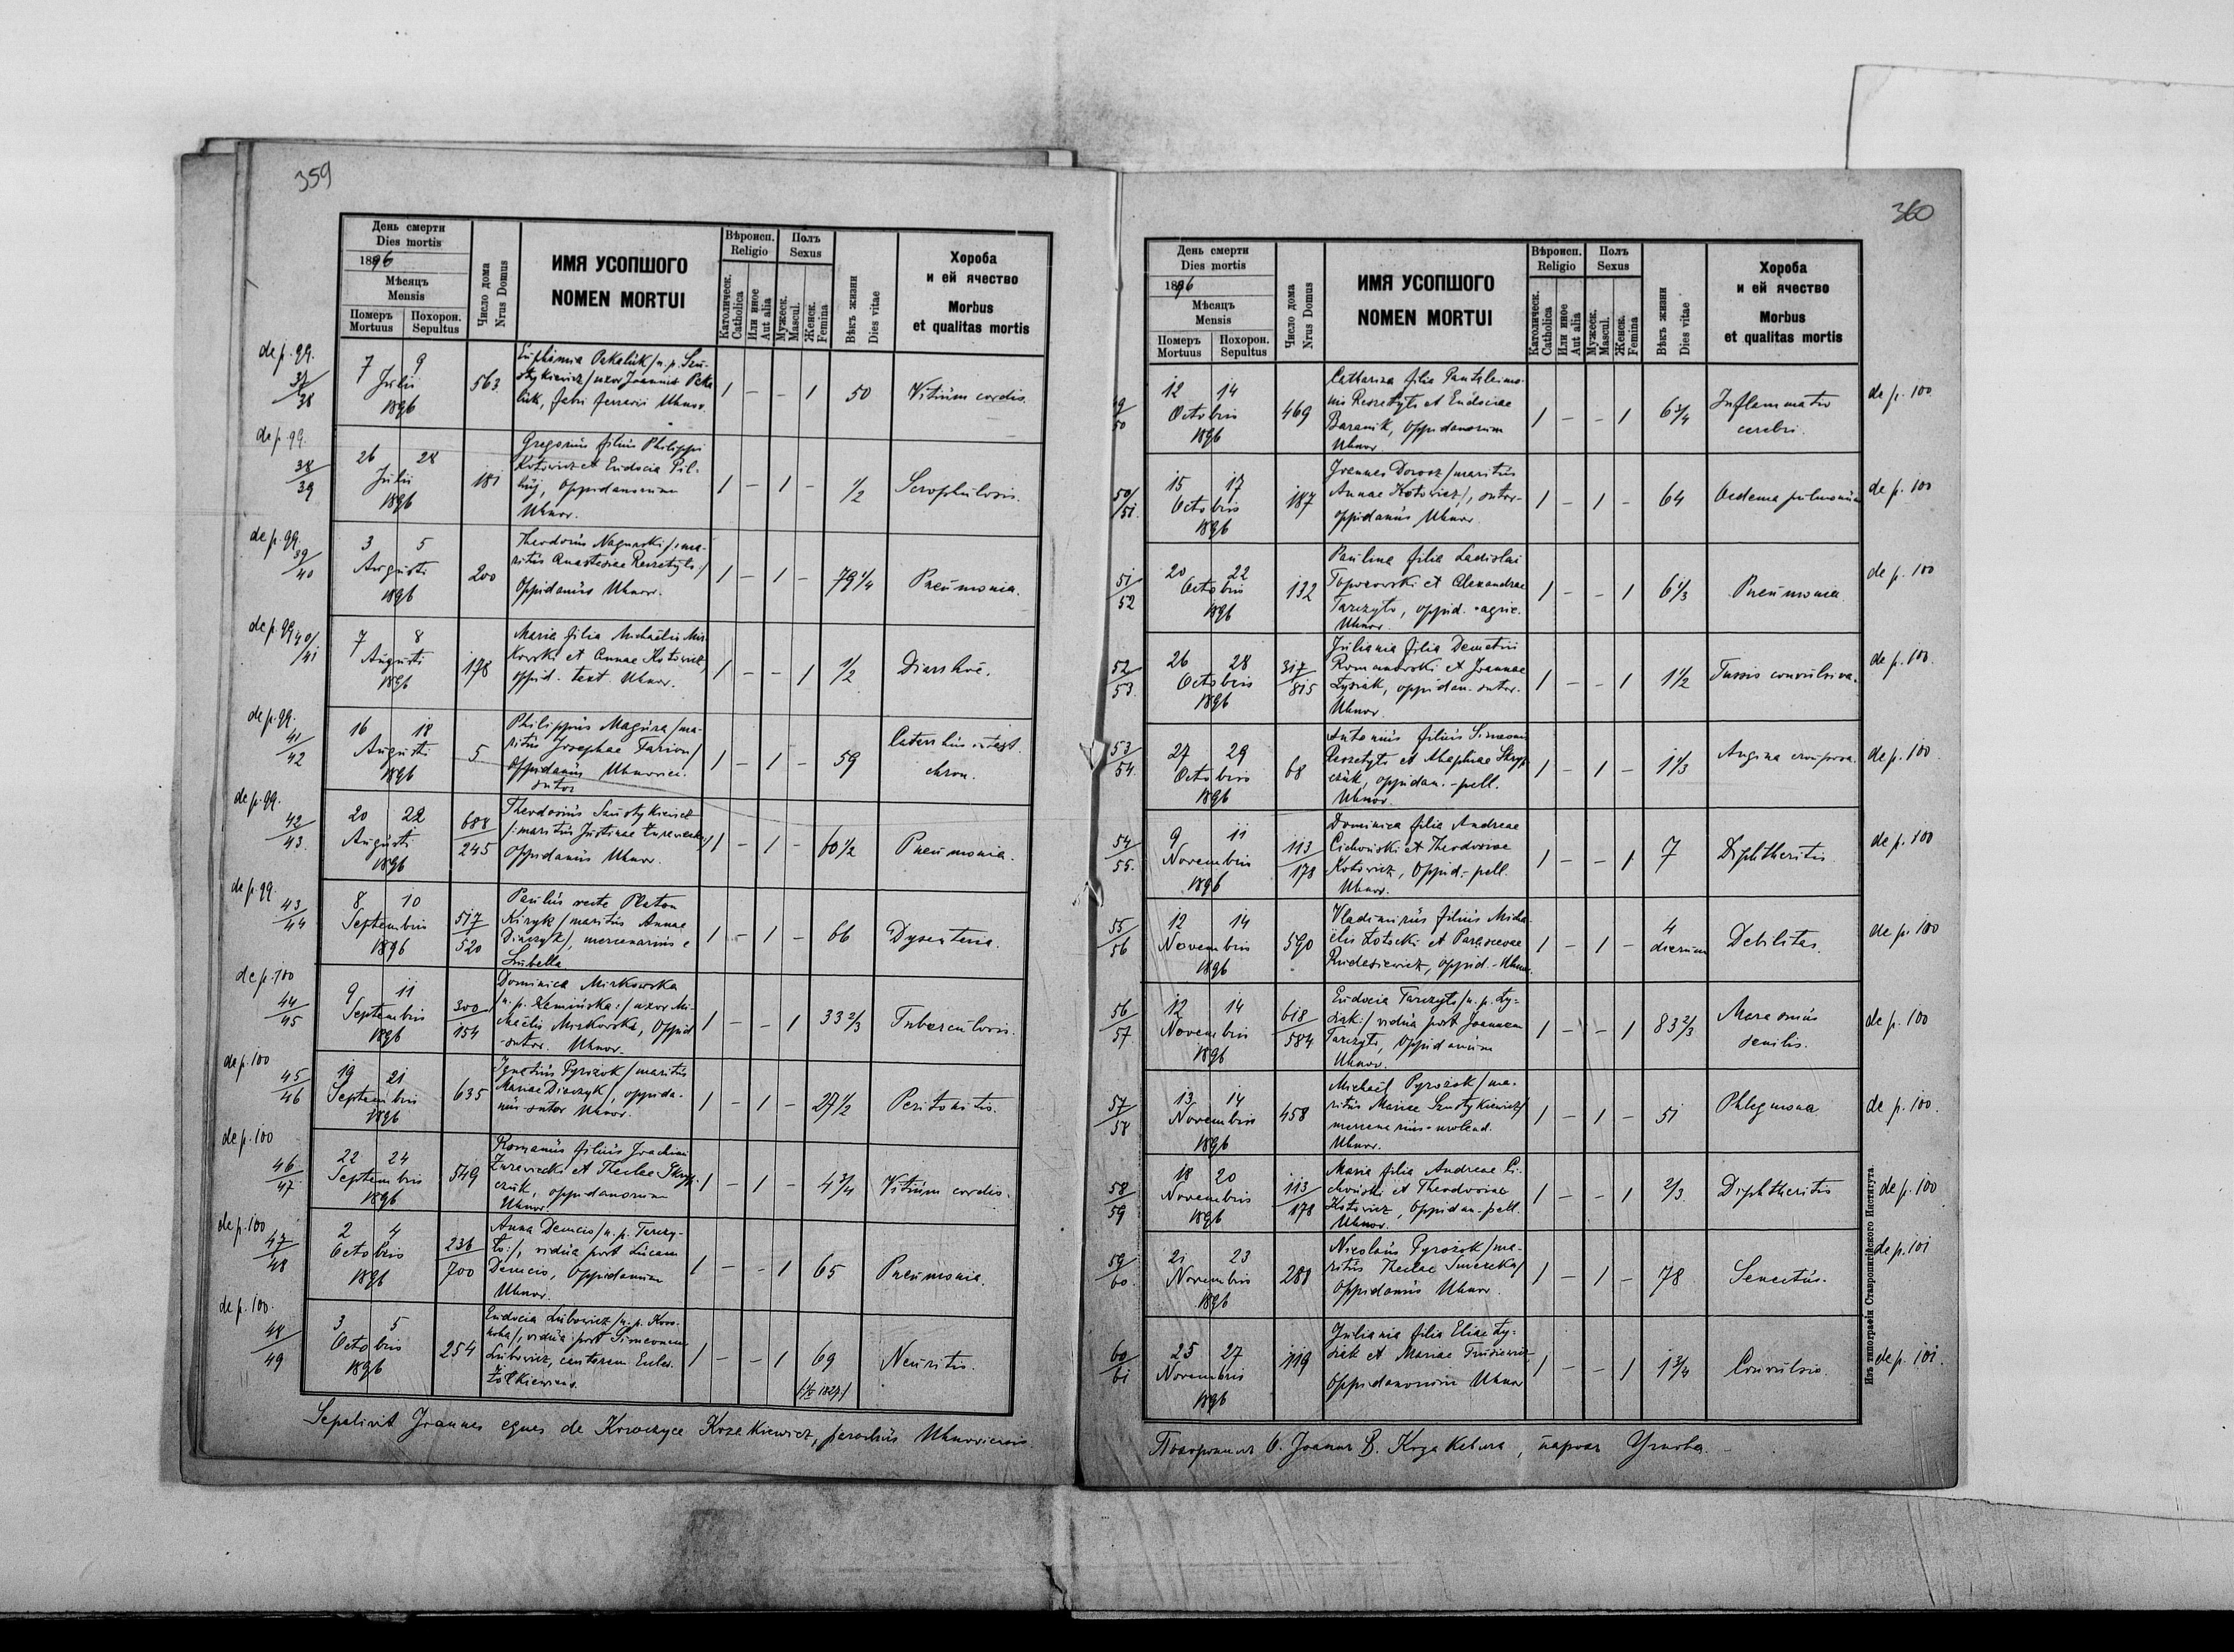 359
День смерти
Dies mortis
1896
Мѣсяцъ
Mensis
Померъ
Mortuus
Похорон.
Sepultus
Число дома
Nrus Domus
ИМЯ УСОПШОГО
NOMEN MORTUI
Вѣроисп.
Religio
Католическ.
Catholica
Или иное
Aut alia
Полъ
Sexus
Мужеск.
Mascul.
Женск.
Femina
Вѣкъ жизни
Dies vitae
Хороба
и ей ячество
Morbus
et qualitas mortis
de p. 99.
37/38
7 9
Julii
1896
563
Euphimia Pekaluk /n. p. Szu-
stykiewicz/ uxor Joannis Peka
luk, fabri ferrarii Uhnov.
1 - - 1
50
Vitium cordis.
de p. 99.
38/39
26 28
Julii
1896
181
Gregorius filius Philippi
Kotowicz et Eudocia Pil-
huj, oppidanorum
Uhnov.
1 - 1 -
1/2
Scrophulosis.
de p. 99.
39/40
3 5
Augusti
1896
200
Theodorus Nagurski /:ma-
ritus Anastasiae Reszetyło:/
Oppidanus Uhnov.
1 - 1 -
79 1/4
Pneumonia.
de p. 99
40/41
7 8
Augusti
1896
178
Maria filia Michaëlis Mir-
kowski et Annae Kotowicz,
oppid. text Uhnov.
1 - - 1
1/2
Diarrhoë.
de p. 99.
41/42
16 18
Augusti
1896
5
Philippus Magura /ma-
ritus Josephae Farion/
Oppidanus Uhnovien.
sutor
1 - 1 -
59
chron.
de p. 99.
42/43.
20 22
Augusti
1896
688/245
Theodorus Szustykiewicz
/:maritus Justinae
Oppidanus Uhnov.
1 - 1 -
60 1/2
Pneumonia.
de p. 99
43/44
8 10
Septembris
1896
517/520
Paulus recte Platon
Kizyk /maritus Annae
Diaczyk/, mercenarius e
Lubella.
1 - 1 -
66
Dysenteria.
de p. 100
44/45
9 11
Septembris
1896
300/154
Dominica Mirkowska
/n. p. Kamińska:/ uxor Mi-
chaëlis Mirkowski, Oppid
-sutor. Uhnov.
1 - - 1
33 2/3
Tuberculosis.
de p. 100
45/46
19 21
Septembris
1896
635
Ignatius Pyrożok /maritus
Mariae Diaczyk/, oppida-
nus sutor Uhnov.
1 - 1 -
27 1/2
Peritonitis.
de p. 100
46/47.
22 24
Septembris
1896
549
Romanus filius Joachimi
Żurawecki et Theclae Skryp-
czuk, oppidanorum
Uhnov.
1 - 1 -
4 3/4
Vitium cordis.
de p. 100
47/48
2 4
Octobris
1896
236/700
Anna Demcio /n. p. Tarczy-
ło:/, vidua post Lucam
Demcio, Oppidanum
Uhnov.
1 - - 1
65
Pneumonia.
de p. 100.
48/49
3 5
Octobris
1896
254
Eudocia Lubowicz
vidua post Simeonem
Lubowicz, cantorem Eccles.
Żółkiewiens.
1 - - 1
69
Neuritis.
Sepelivit Joannes eques de Koroczyce Kozakiewicz, parochus Uhnoviensis
360
День смерти
Dies mortis
1896
Мѣсяцъ
Mensis
Померъ
Mortuus
Похорон.
Sepultus
Число дома
Nrus Domus
ИМЯ УСОПШОГО
NOMEN MORTUI
Вѣроисп.
Religio
Католическ.
Catholica
Или иное
Aut alia
Полъ
Sexus
Мужеск.
Mascul.
Женск.
Femina
Вѣкъ жизни
Dies vitae
Хороба
и ей ячество
Morbus
et qualitas mortis
49/50
12 14
Octobris
1896
469
Catharina filia Pantaleimo-
nis Reszetyło et Eudociae
Baranik, Oppidanorum
Uhnov.
1 - - 1
6 3/4
Inflammatio
cerebri.
de p. 100
50/51.
15 17
Octobris
1896
187
Joannes Dorosz /maritus
Annae Kotowicz/, sutor-
oppidanus Uhnov.
1 - 1 -
64
Oedema pulmonum
de p. 100
51/52
20 22
Octobris
1896
132
Paulina filia Ladislai
Toporowski et Alexandrae
Tarczyło, oppid. agric.
Uhnov.
1 - - 1
6 1/3
Pneumonia
de p. 100
52/53.
26 28
Octobris
1896
317/815
Juliania filia Demetrii
Romanowski et Joannae
Łysiak, oppidan. sutor.
Uhnov.
1 - - 1
1 1/2
Tussis convulsiva.
de p. 100.
53/54.
27 29
Octobris
1896
68
Antonius filius Simeonis
Reszetyło et Ahaphiae Skryp-
czuk, oppidan.-pell.
Uhnov.
1 - 1 -
1 1/3
Angina
de p. 100.
54/55.
9 11
Novembris
1896
113/178
Dominica filia Andreae
Cichoński et Theodosiae
Kotowicz, Oppid.-pell.
Uhnov.
1 - - 1
7
Diphtheritis.
de p. 100
55/56
12 14
Novembris
1896
590
Vladimirus filius Micha-
ëlis Łotocki et Parascevae
oppid.-Uhnov.
1 - 1 -
4
dierum
Debilitas.
de p. 100
56/57.
12 14
Novembris
1896
618/584
Eudocia Tarczyło /n. p. Ły-
siak:/ vidua post Joannem
Tarczyło, Oppidanum
Uhnov.
1 - - 1
83 2/3
Marasmus
senilis.
de p. 100
57/58
13 14
Novembris
1896
458
Michaël Pyrożok /ma-
ritus Mariae Szustykiewicz/
mercenarius
Uhnov.
1 - 1 -
51
Phlegmona
de p. 100.
58/59
18 20
Novembris
1896
113/178
Maria filia Andreae Ci-
choński et Theodosiae
Kotowicz, Oppidan-pell.
Uhnov.
1 - - 1
2/3
Diphtheritis
de p. 100
59/60.
21 23
Novembris
1896
281
Nicolaus Pyrożok /ma-
ritus Theclae Smereka/
Oppidanus Uhnov.
1 - 1 -
78
Senectus.
de p. 101
60/61
25 27
Novembris
1896
119
Juliania filia Eliae Ły-
siak et Mariae
Oppidanorum Uhnov
1 - - 1
1 3/4
Convulsio.
de p. 101.
Изъ типографіи Ставропигійского Института.
Похоронилъ О. Іоаннъ В. Козакевичъ, парохъ Угнова.